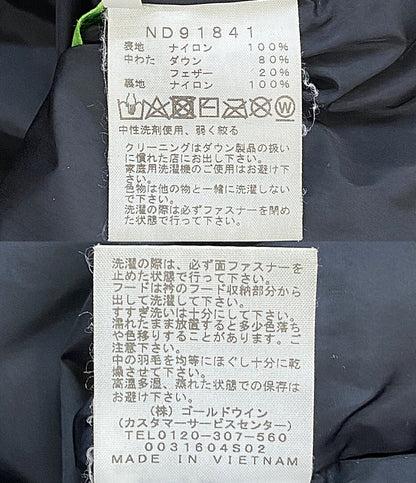 ND91841
表地 ナイロン 100%
中わた ダウン 80%
フェザー 20%
裏地 ナイロン 100%
中性洗剤使用、弱く絞る
クリーニングはダウン製品の扱い
に慣れた店にお出し下さい。
家庭用洗濯機のご使用はお避け下さい。
色物は他の物と一緒に洗濯しない
で下さい。
洗濯の際は必ずファスナーを閉め
た状態で行って下さい。
洗濯の際は、必ず面ファスナーを
止めた状態で行って下さい。
フードは衿のフード収納部分から
出して洗濯して下さい。
すすぎ洗いは十分にして下さい。
濡れたまま放置すると多少色落ち
や色移りすることがあります。ご
注意下さい。
中の羽毛を均等にほぐし十分に乾
燥させて下さい。
高温多湿、蒸れた状態での保存は
お避け下さい。
(株) ゴールドウイン
(カスタマーサービスセンター)
TEL0120-307-560
0031604S02
MADE IN VIETNAM